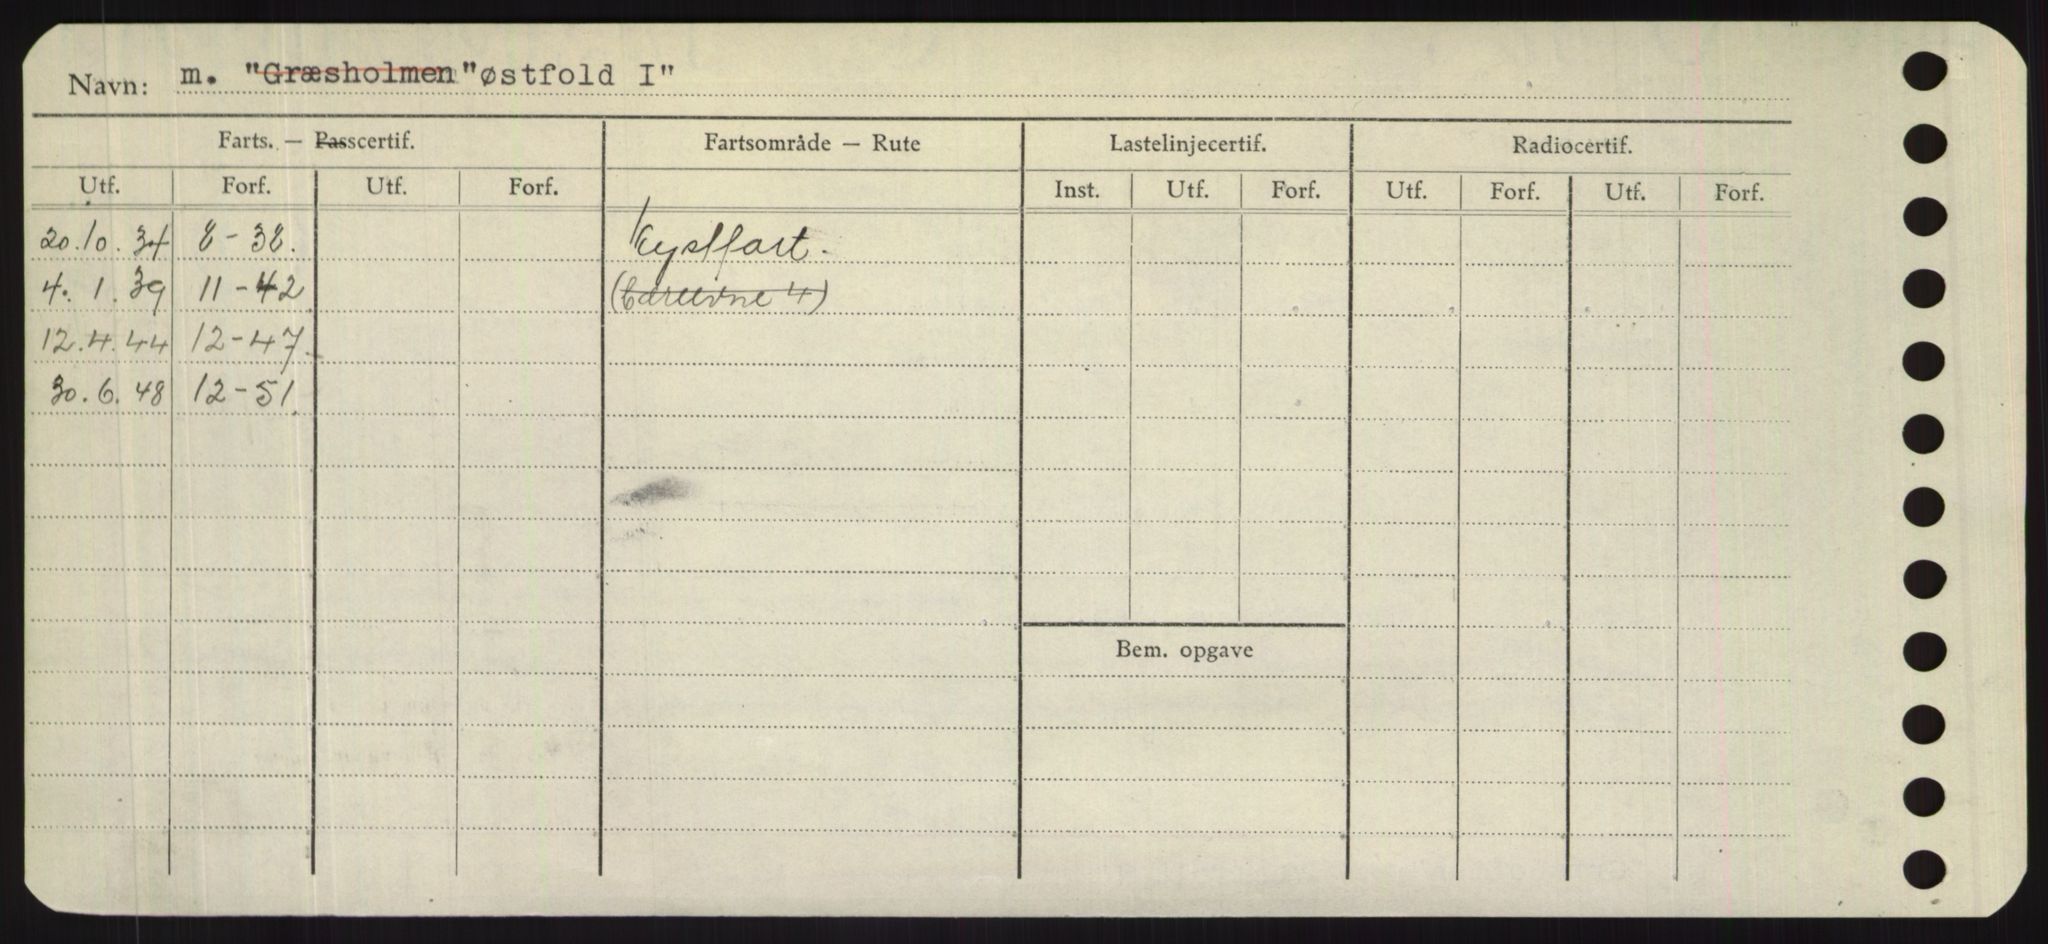 Navn: m. "Græsholmen" østfold I"
Farts. — Passcertif. Fartsområde — Rute Lastelinjecertif. Radiocertif.
Utf. Forf. Utf. Forf. Inst. Utf. Forf. Utf. Forf. Utf. Forf.
20.10.34 8-38. Kystfart.
4. 1. 39 11-42
12.4.44 12-47.
30.6.48 12-51.
Bem. opgave